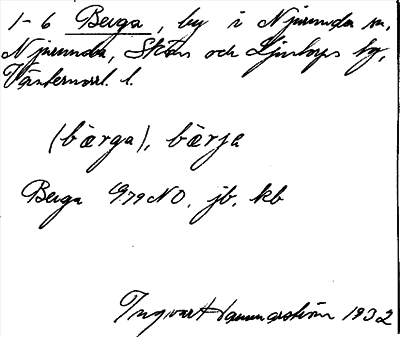 1-6 Berga, by i Njurunda sn,
Njurunda, Sköns och Ljustorps tg,
Västernorrl. l.
(bärga), bärja
Berga G.79 NO, jb, kb
Ingvar Hammarström 1932